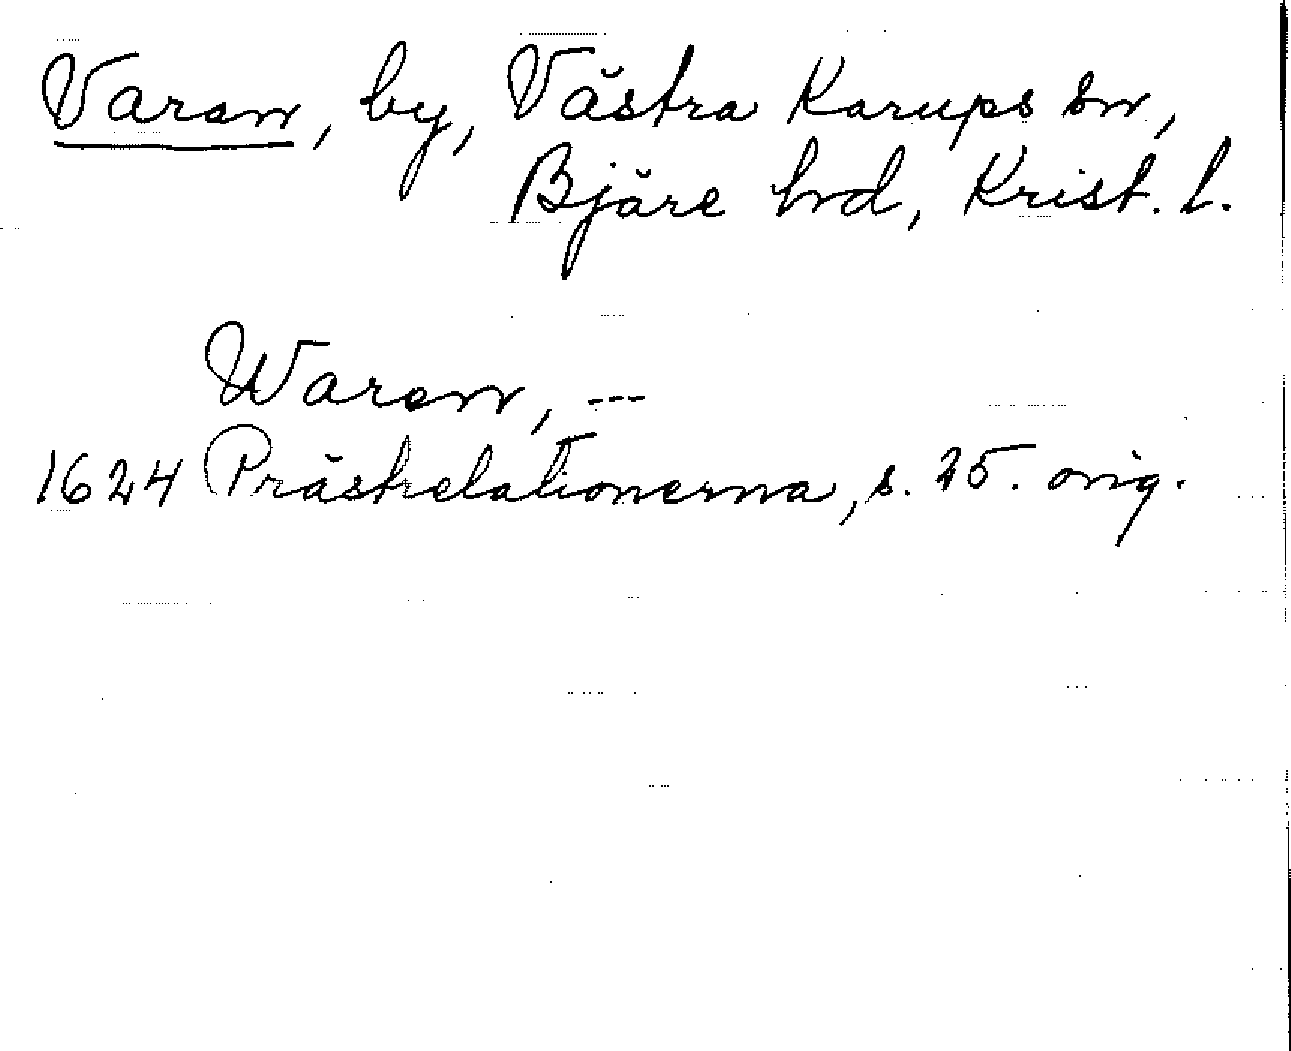 Varan, by, Västra Karups sn,
Bjäre hrd, Krist. l.
Waran, ---
1624 Prästrelationerna, s. 25. orig.